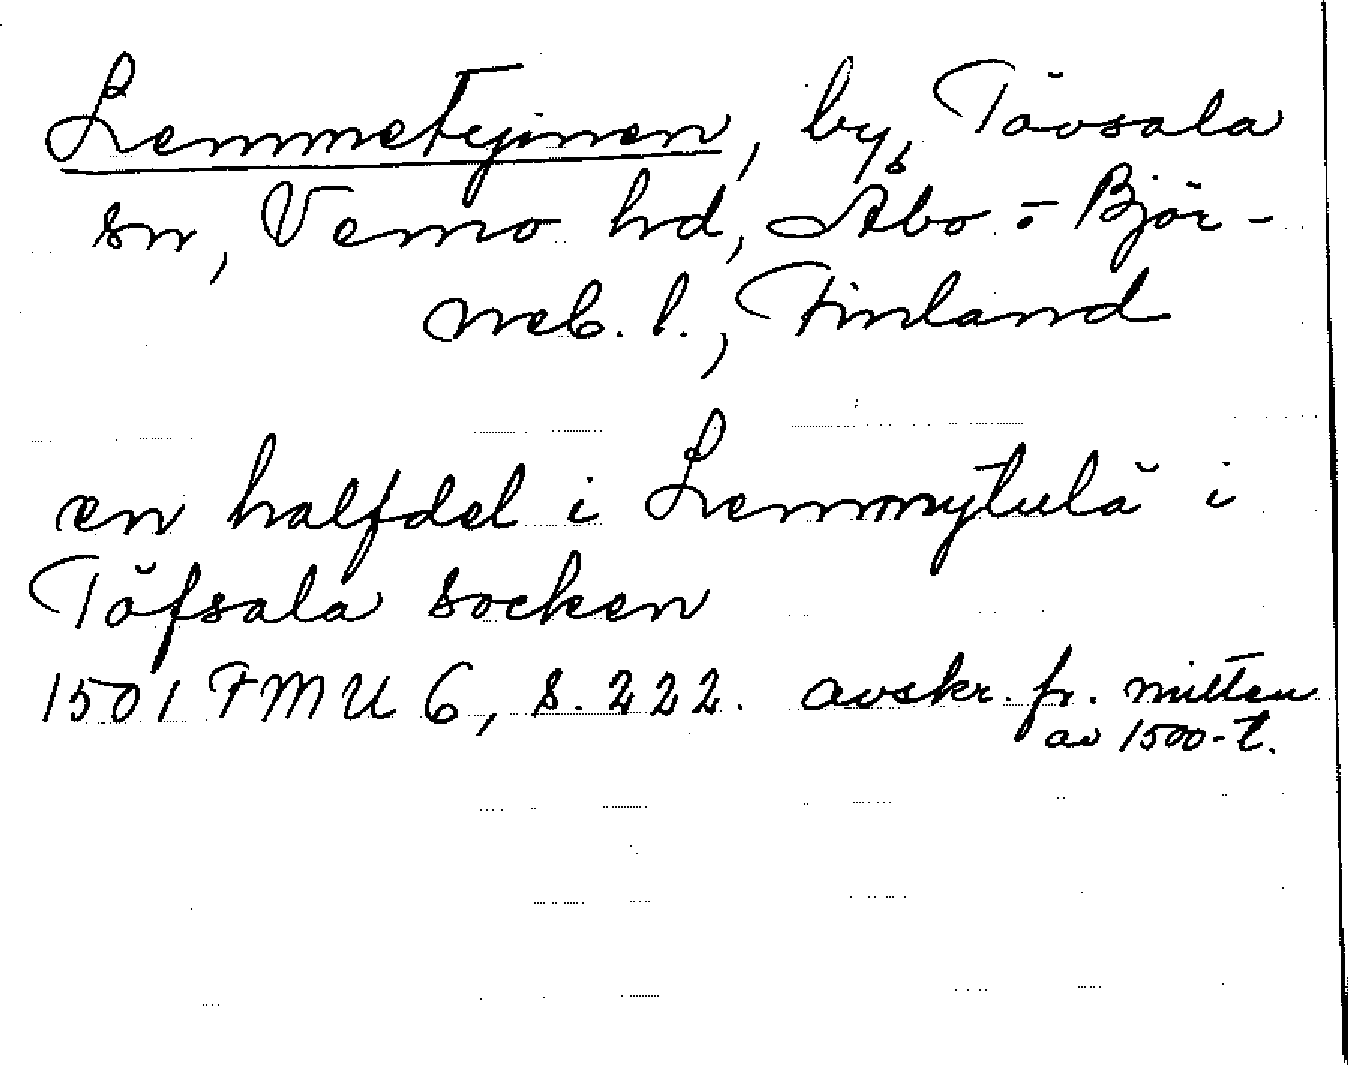 Lemmetyinen, by, Tövsala
sn, Vemo hd, Åbo o. Björ-
neb. l., Finland
en halfdel i Lemmytulä i
Töfsala socken
1501 FMU 6, s. 222. avskr. fr. mitten
av 1500-t.